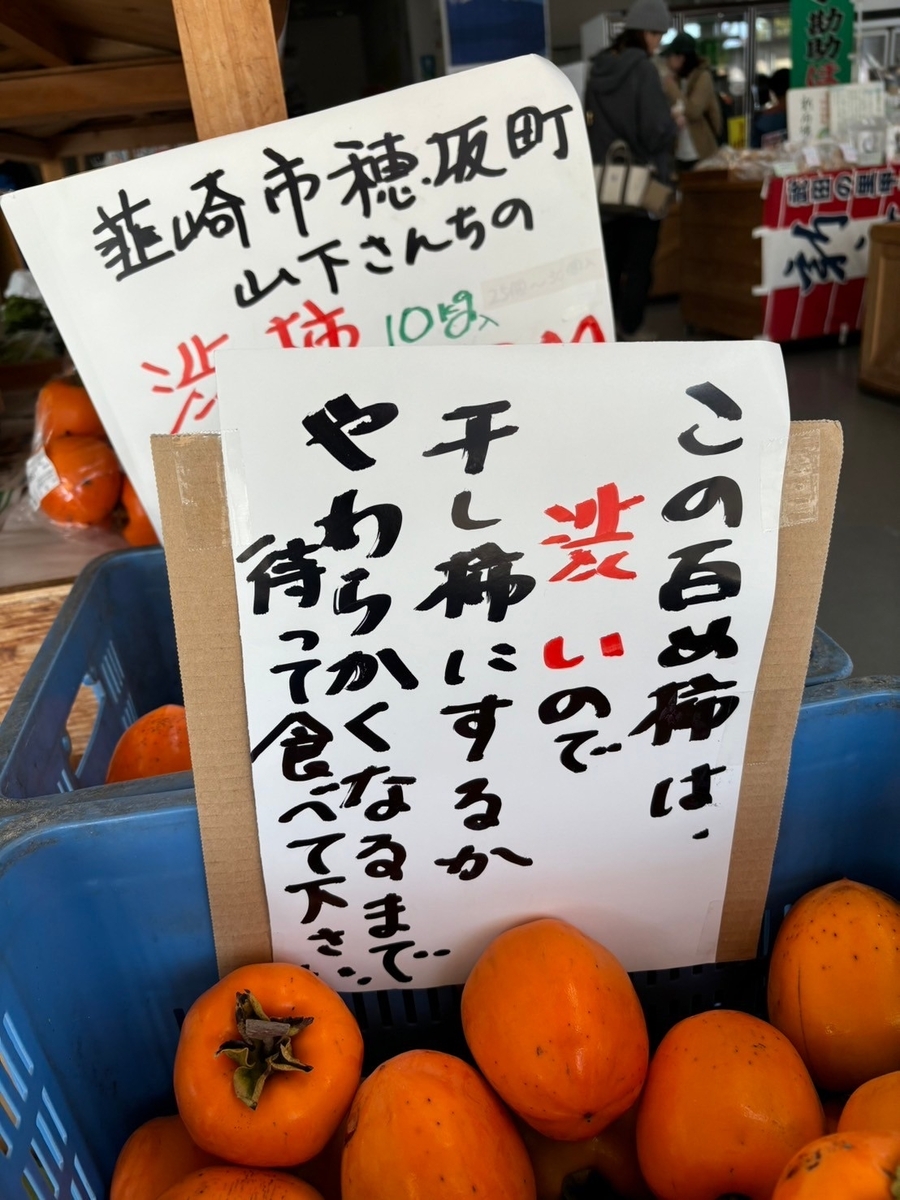 韮崎市穂坂町
山下さんちの
渋柿 10kg入
この百め柿は、
渋いので
干し柿にするか
やわらかくなるまで
待って食べて下さい